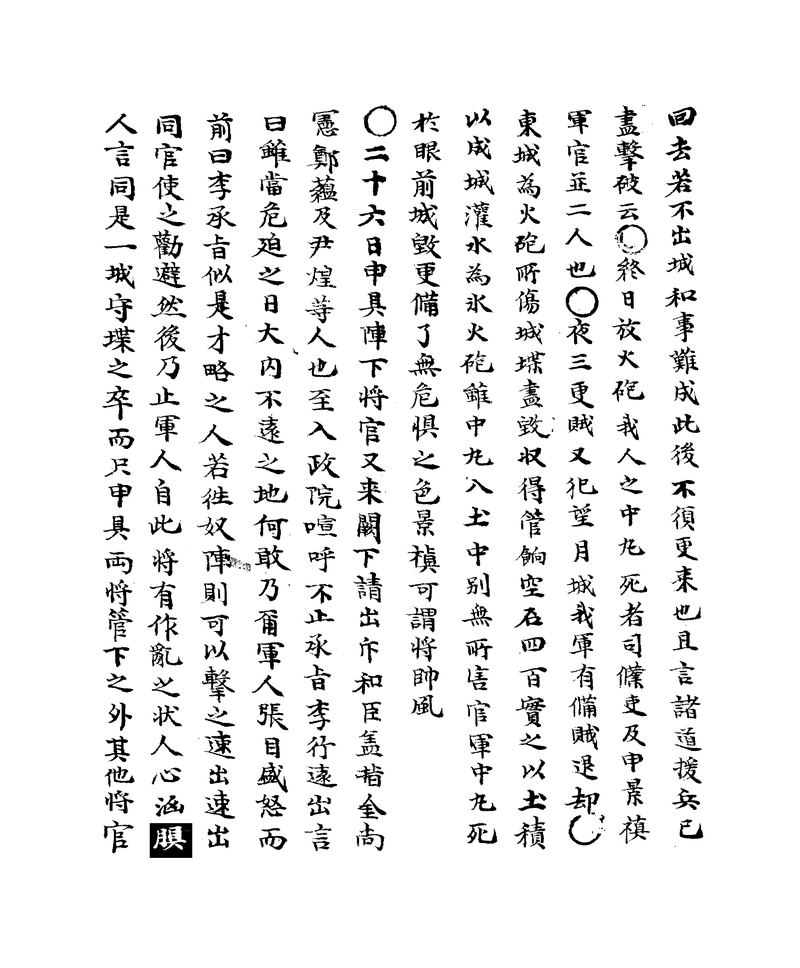 回去若不出城和事難成此後不須更来也且言諸道援兵已
盡擊破云○終日放火砲我人之中丸死者司僕吏及申景禛
軍官並二人也○夜三更賊又犯望月城我軍有備賊退却○
東城為火砲所傷城堞盡毀収得管餉空石四百實之以土積
以成城灌水為氷火砲雖中丸入土中別無所害官軍中丸死
於眼前城毀更備了無危惧之色景禛可謂将帥風
○二十六日申具陣下将官又来闕下請出斥和臣盖指金尚
憲鄭蘊及尹煌等人也至入政院喧呼不止承旨李行遠出言
曰雖當危廹之日大内不遠之地何敢乃爾軍人張目盛怒而
前曰李承旨似是才略之人若徃奴陣則可以擊之速出速出
同官使之勸避然後乃止軍人自此将有作亂之状人心㴠
人言同是一城守堞之卒而只申具両将管下之外其他将官